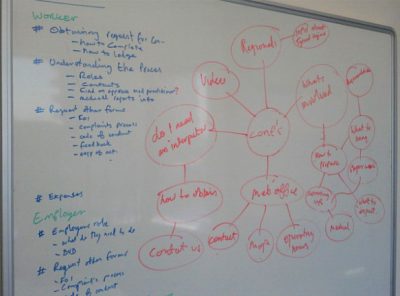 WORKER
# Obtaining request for Con-
- How to Complete
- How to lodge
# Understanding the Process
- Roles
- Contacts
- Find an approved med practitioner?
- Medical reports info
# Request other forms
- FOI
- Complaints process
- code of conduct
- feedback
- copy of act
# Expenses
Employer
# Employers role
- what do they need to do
- DVD
# Request other forms
- FOI
- Complaints process
- code of conduct
Regional
Video
What's involved
do I need an interpreter
conc's
How to prepare
What to bring
how to obtain
Melb office
Contact us
Contact
Map
operating hours
Medical
What to expect